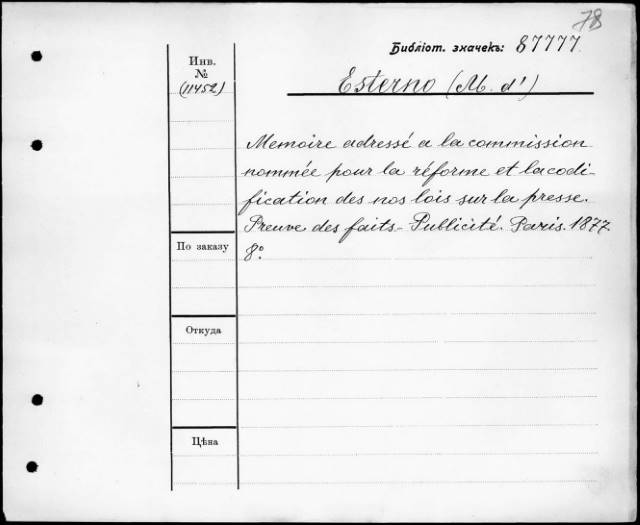 78
Библіот. значекъ: 87777.
Инв.
№
(11452)
Esterno (M. d')
Memoire adressé a la commission
nommée pour la réforme et la codi-
fication des nos lois sur la presse.
Preuve des faits - Publicité. Paris. 1877
8°.
По заказу
Откуда
Цѣна